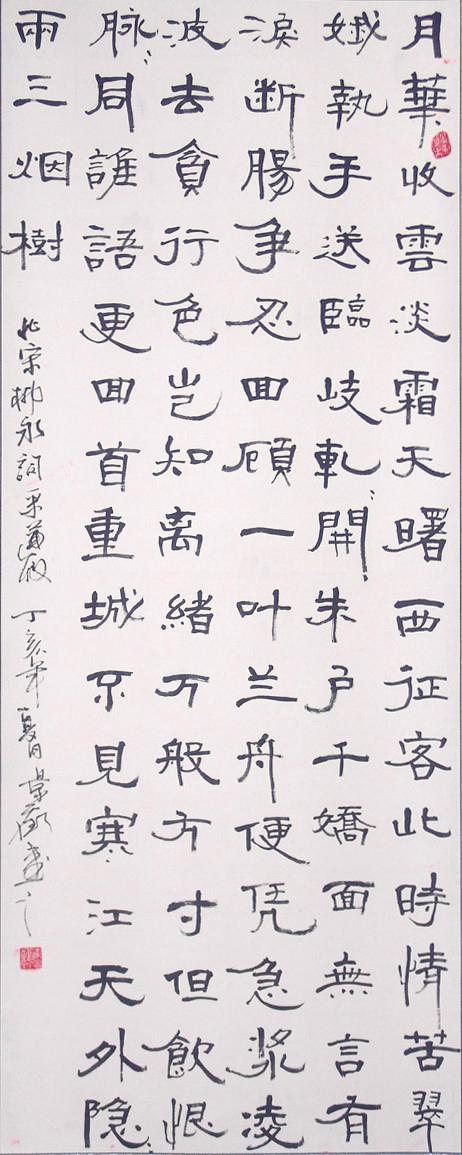 月華收雲淡霜天曙西征客此時情苦翠
娥執手送臨岐軋〻開朱户千嬌面無言有
淚断腸爭忍囬顧一叶兰舟便凭急漿凌
波去貪行色岂知离緒万般方寸但飲恨
脉〻同誰語更囬首重城不見寒江天外隐〻
兩三烟樹
北宋柳永詞采 丁亥年夏月 書之